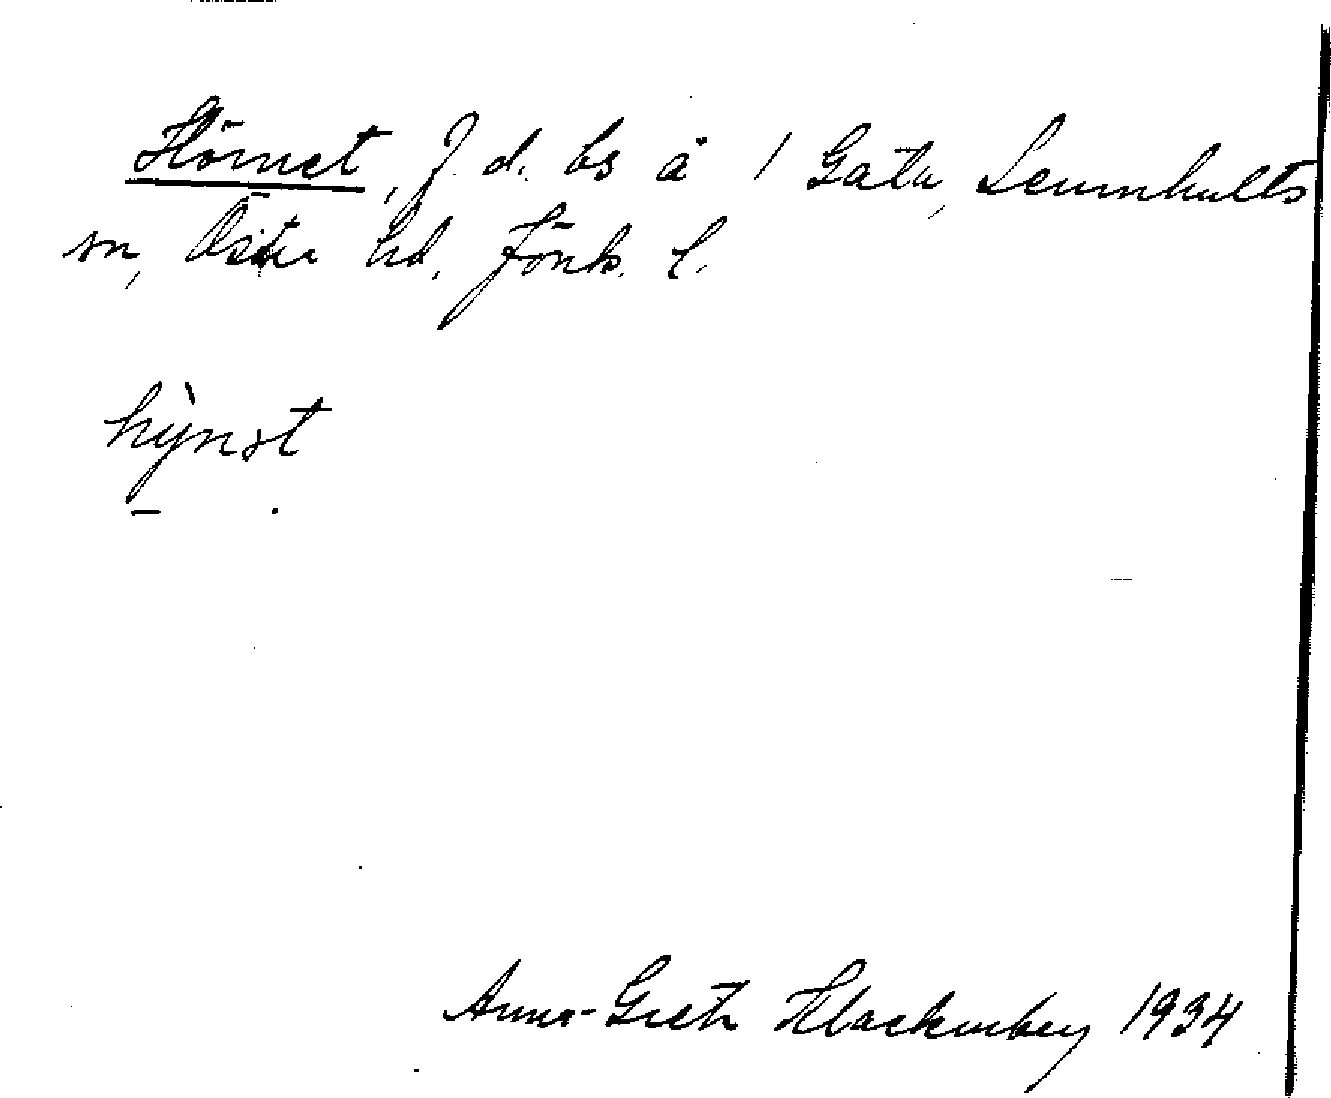 Hörnet, f. d. bs å 1 Gata, Lemnhults
sn, Östra hd, Jönk. l.
hỳnət
Anna-Greta Klackenberg 1934